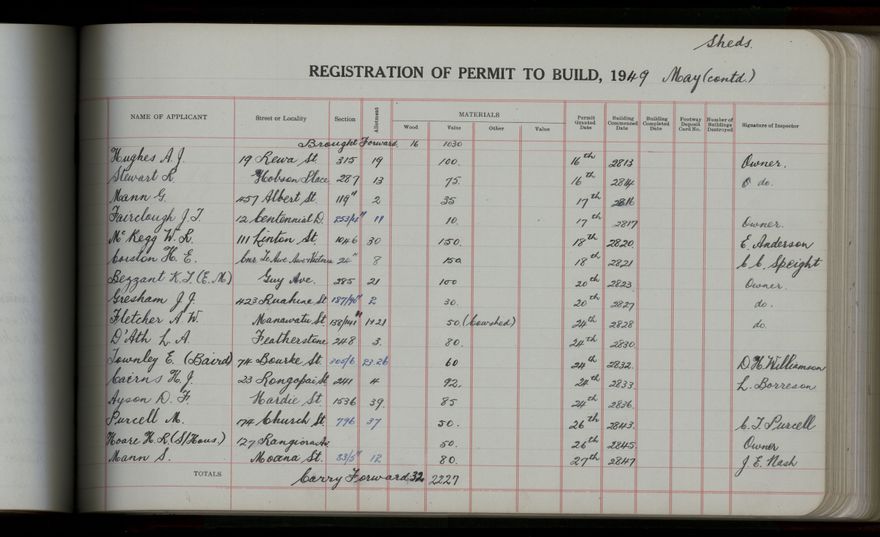 Sheds.
REGISTRATION OF PERMIT TO BUILD, 1949 May (contd.)
NAME OF APPLICANT Street or Locality Section Allotment MATERIALS Wood Value Other Value Permit Granted Date Building Commenced Date Building Completed Date Footway Deposit Card No. Number of Buildings Destroyed Signature of Inspector
Brought Forward 16 1030
Hughes A. J. 19 Rewa St. 315 19 100. 16th 2813 Owner.
Stewart R. Hobson Place 287 13 75. 16th 2814 do.
Mann G. 457 Albert St. 119" 2 35 17th
Fairclough J. T. 12 Centennial D. 10. 17th 2817 Owner.
McKegg W. R. 111 Linton St. 1046 30 150. 18th 2820. E. Anderson
H. E. 8 150 18th 2821 C. C. Speight
Bezzant K. T. (E. M.) Guy Ave. 285 21 100 20th 2823 Owner.
Gresham J. J. 423 Ruahine St 187/90" 2 30. 20th 2827 do.
Fletcher A. W. Manawatu St. 1+21 50. (Cowshed) 24th 2828 do.
D'Ath L. A. Featherstone 248 3. 80. 24th 2830.
Townley E. (Baird) 74 Bourke St. 23.26 60 24th 2832. D. H. Williamson
Cairns H. J. 23 Rongopai St. 241 4 92. 24th 2833. L. Borreson
Ayson D. F. Hardie St. 1536 39. 85 24th 2836.
Purcell M. 174 Church St. 796 37 50. 26th 2843. C. T. Purcell
Hoare H. R. (S/Hous.) 127 Rangiora Av. 50. 26th 2845. Owner
Mann S. Moana St. 33/5" 12 80. 27th 2847 J. E. Nash
TOTALS Carry Forward 32 2227